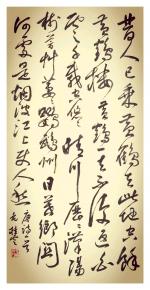 昔人已乘黃鶴去此地空餘
黃鶴樓黃鶴一去不復返白
雲千載空悠悠晴川歷歷漢陽
樹芳草萋萋鸚鵡洲日暮鄉關
何處是煙波江上使人愁唐詩一首